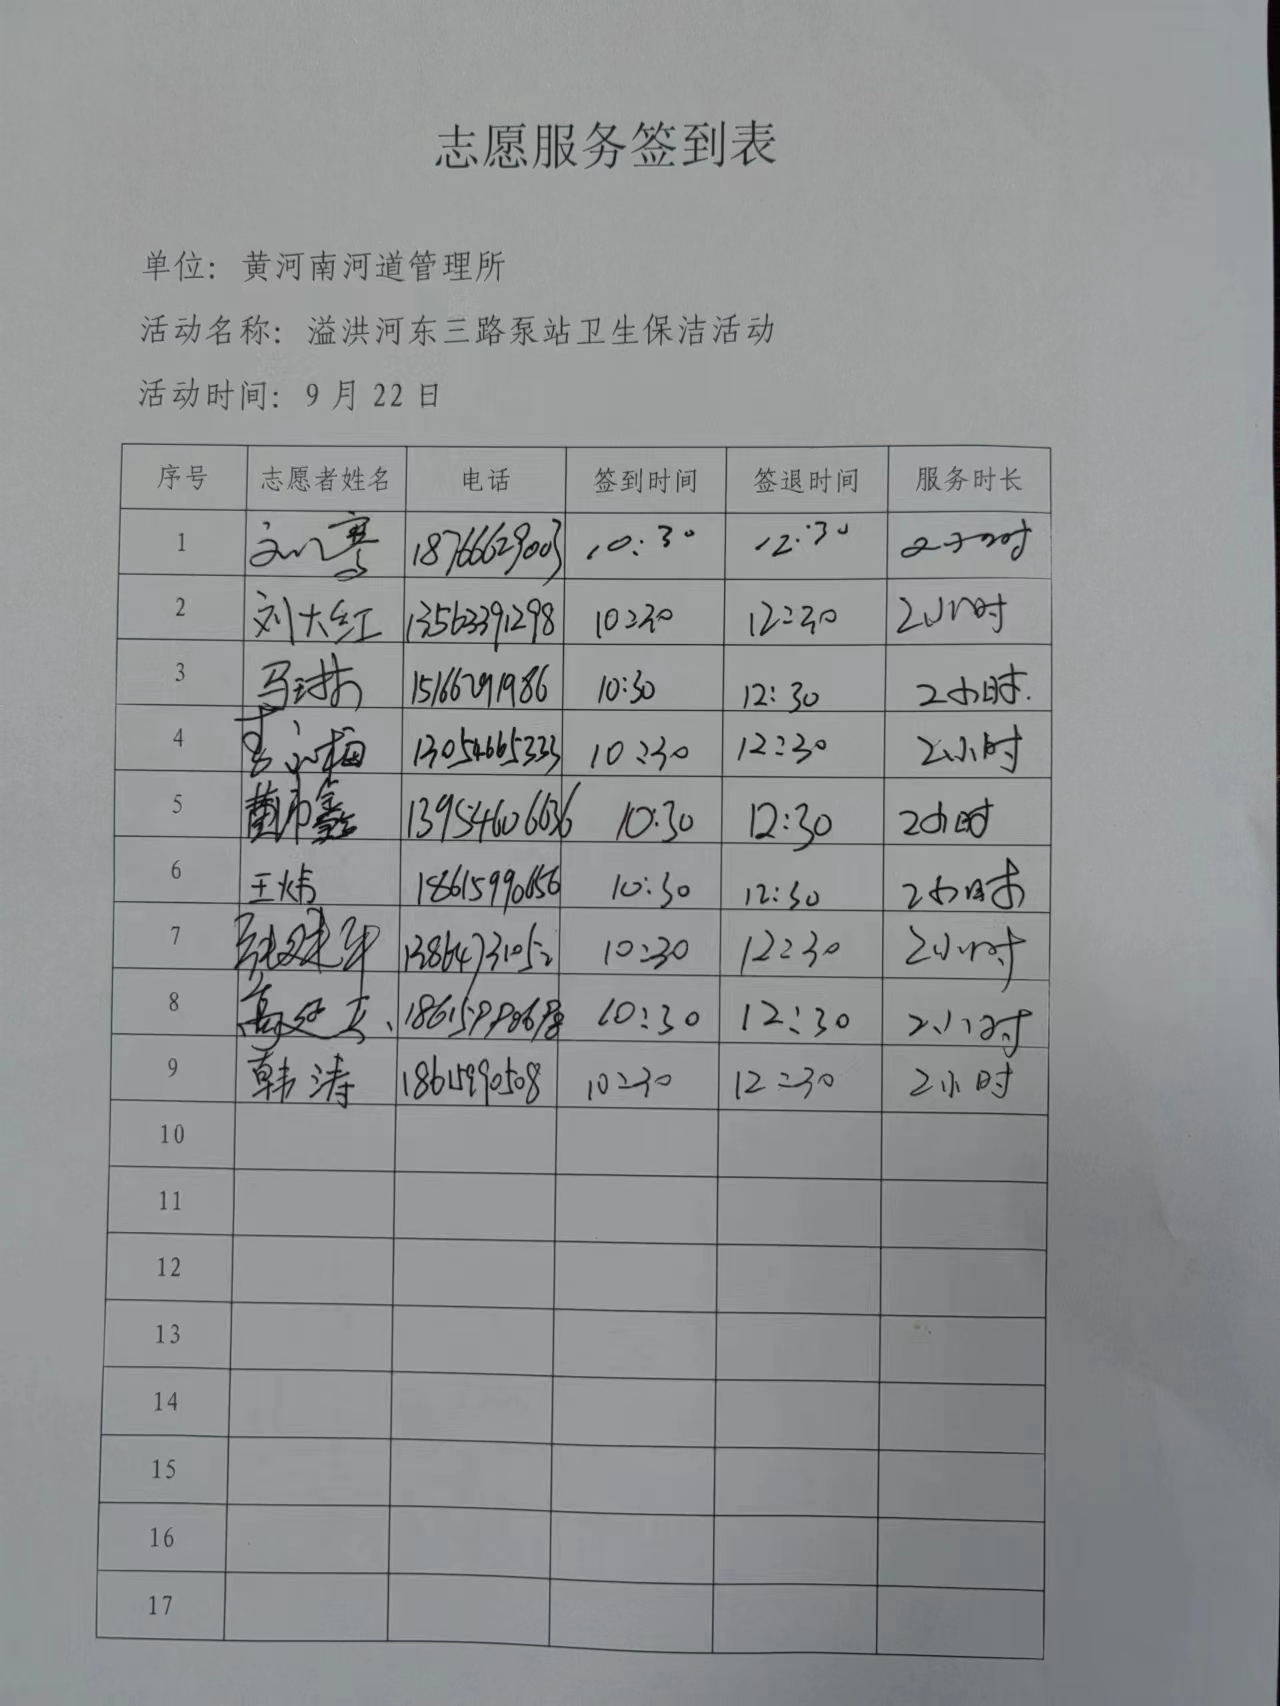 志愿服务签到表
单位：黄河南河道管理所
活动名称：溢洪河东三路泵站卫生保洁活动
活动时间：9月22日
序号 志愿者姓名 电话 签到时间 签退时间 服务时长
1 18766629003 10:30 12:30 2小时
2 刘大红 13563391298 10:30 12:30 2小时
3 马琳 15166291986 10:30 12:30 2小时.
4 13054665333 10:30 12:30 2小时
5 13954606636 10:30 12:30 2小时
6 王炜 18615990656 10:30 12:30 2小时
7 13864731052 10:30 12:30 2小时
8 10:30 12:30 2小时
9 韩涛 18615990508 10:30 12:30 2小时
10
11
12
13
14
15
16
17